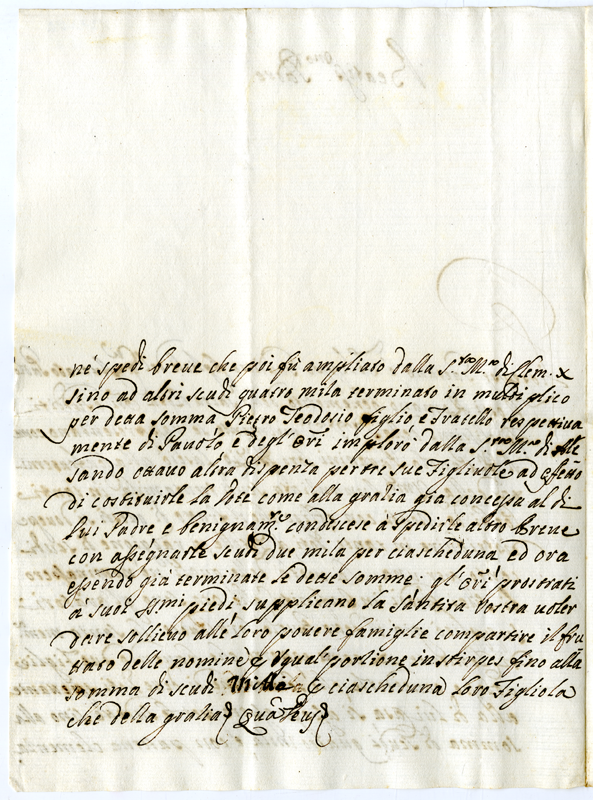 ne spedi breve che poi fù ampliato dalla S.ta M.a di Clem. X
sino ad altri scudi quatro mila terminato in multiplico
per detta somma Pietro Teodosio figlio e fratello respettiva
mente di Pauolo, e degl' Ori implorò dalla S.ta M.a di Ales
sandro ottauo altra dispenza per tre sue Figliuole ad effetto
di costituirle la Dote come alla gratia già concessa al di
lui Padre e benignam.te condiscese à spedirle altro Breue
con assegnarle scudi due mila per ciascheduna ed ora
essendo già terminate le dette somme gl' Ori prostrati
à suoi SSmi piedi supplicano la Santità Vostra voler
dare sollieuo alle loro pouere famiglie compartire il fru
ttato delle nomine p egual portione in stirpes fino alla
somma di scudi Mille p ciascheduna loro Figliola
che della gratia Quam Deus